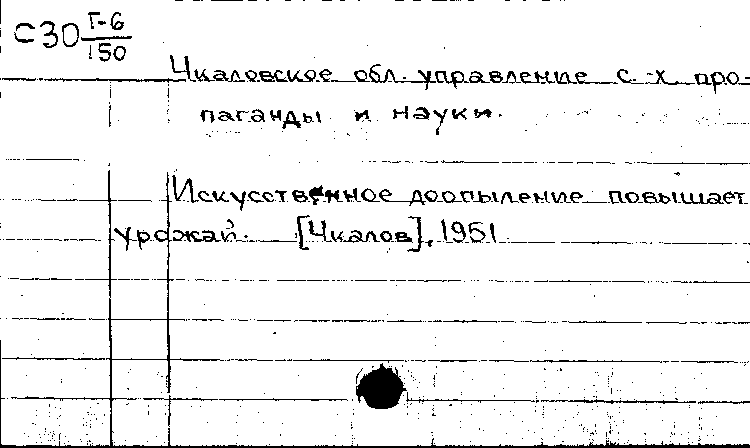 С30 Г-6/150
Чкаловское обл. управление с.-х про-
паганды и науки.
Искусственное доопыление повышает
урожай. [Чкалов], 1951